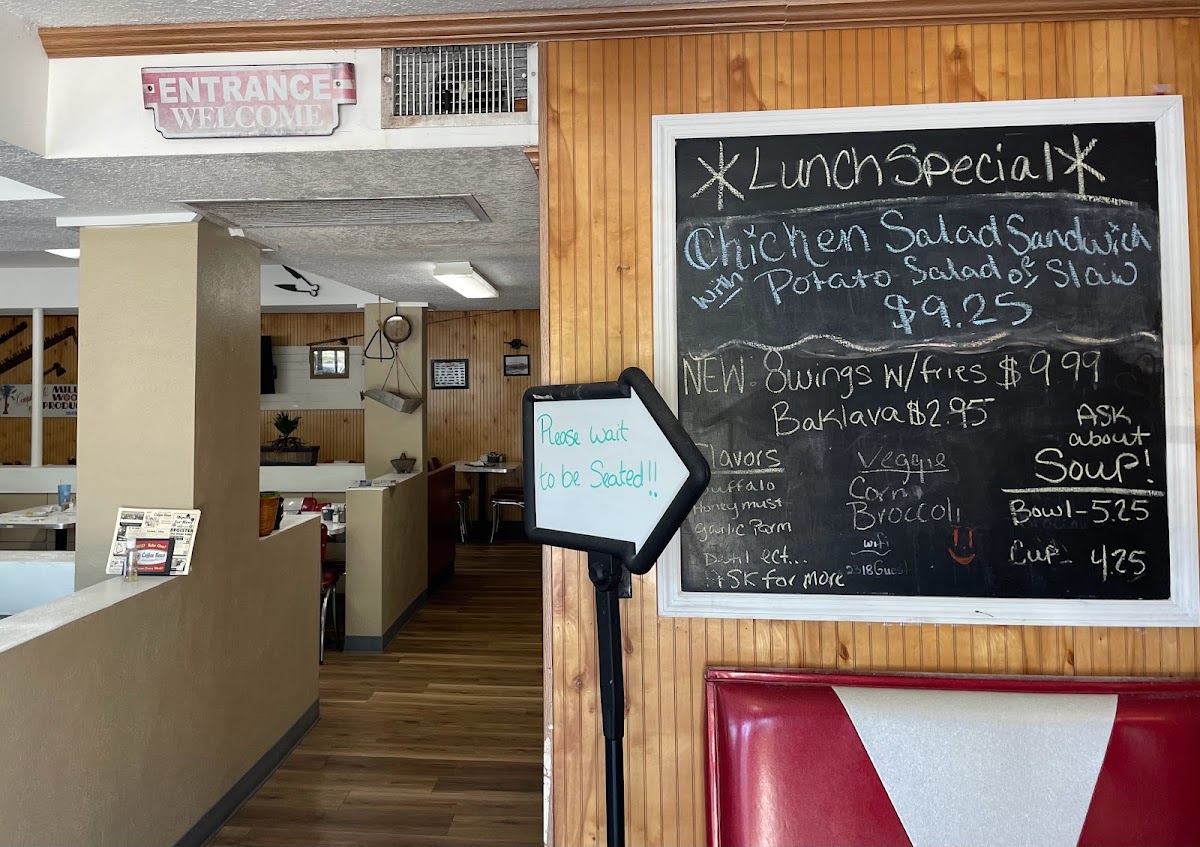 ENTRANCE
WELCOME
Please wait
to be Seated!!
*Lunch Special*
Chicken Salad Sandwich
with Potato Salad or Slaw
$9.25
NEW. 8 wings w/fries $9.99
Baklava $2.95
Flavors
Buffalo
Honey must
Garlic Parm
ect...
ASK for more
Veggie
Corn
Broccoli
wifi
Ask
about
Soup!
Bowl - 5.25
Cup - 4.25
MILL
WOO
PRODU